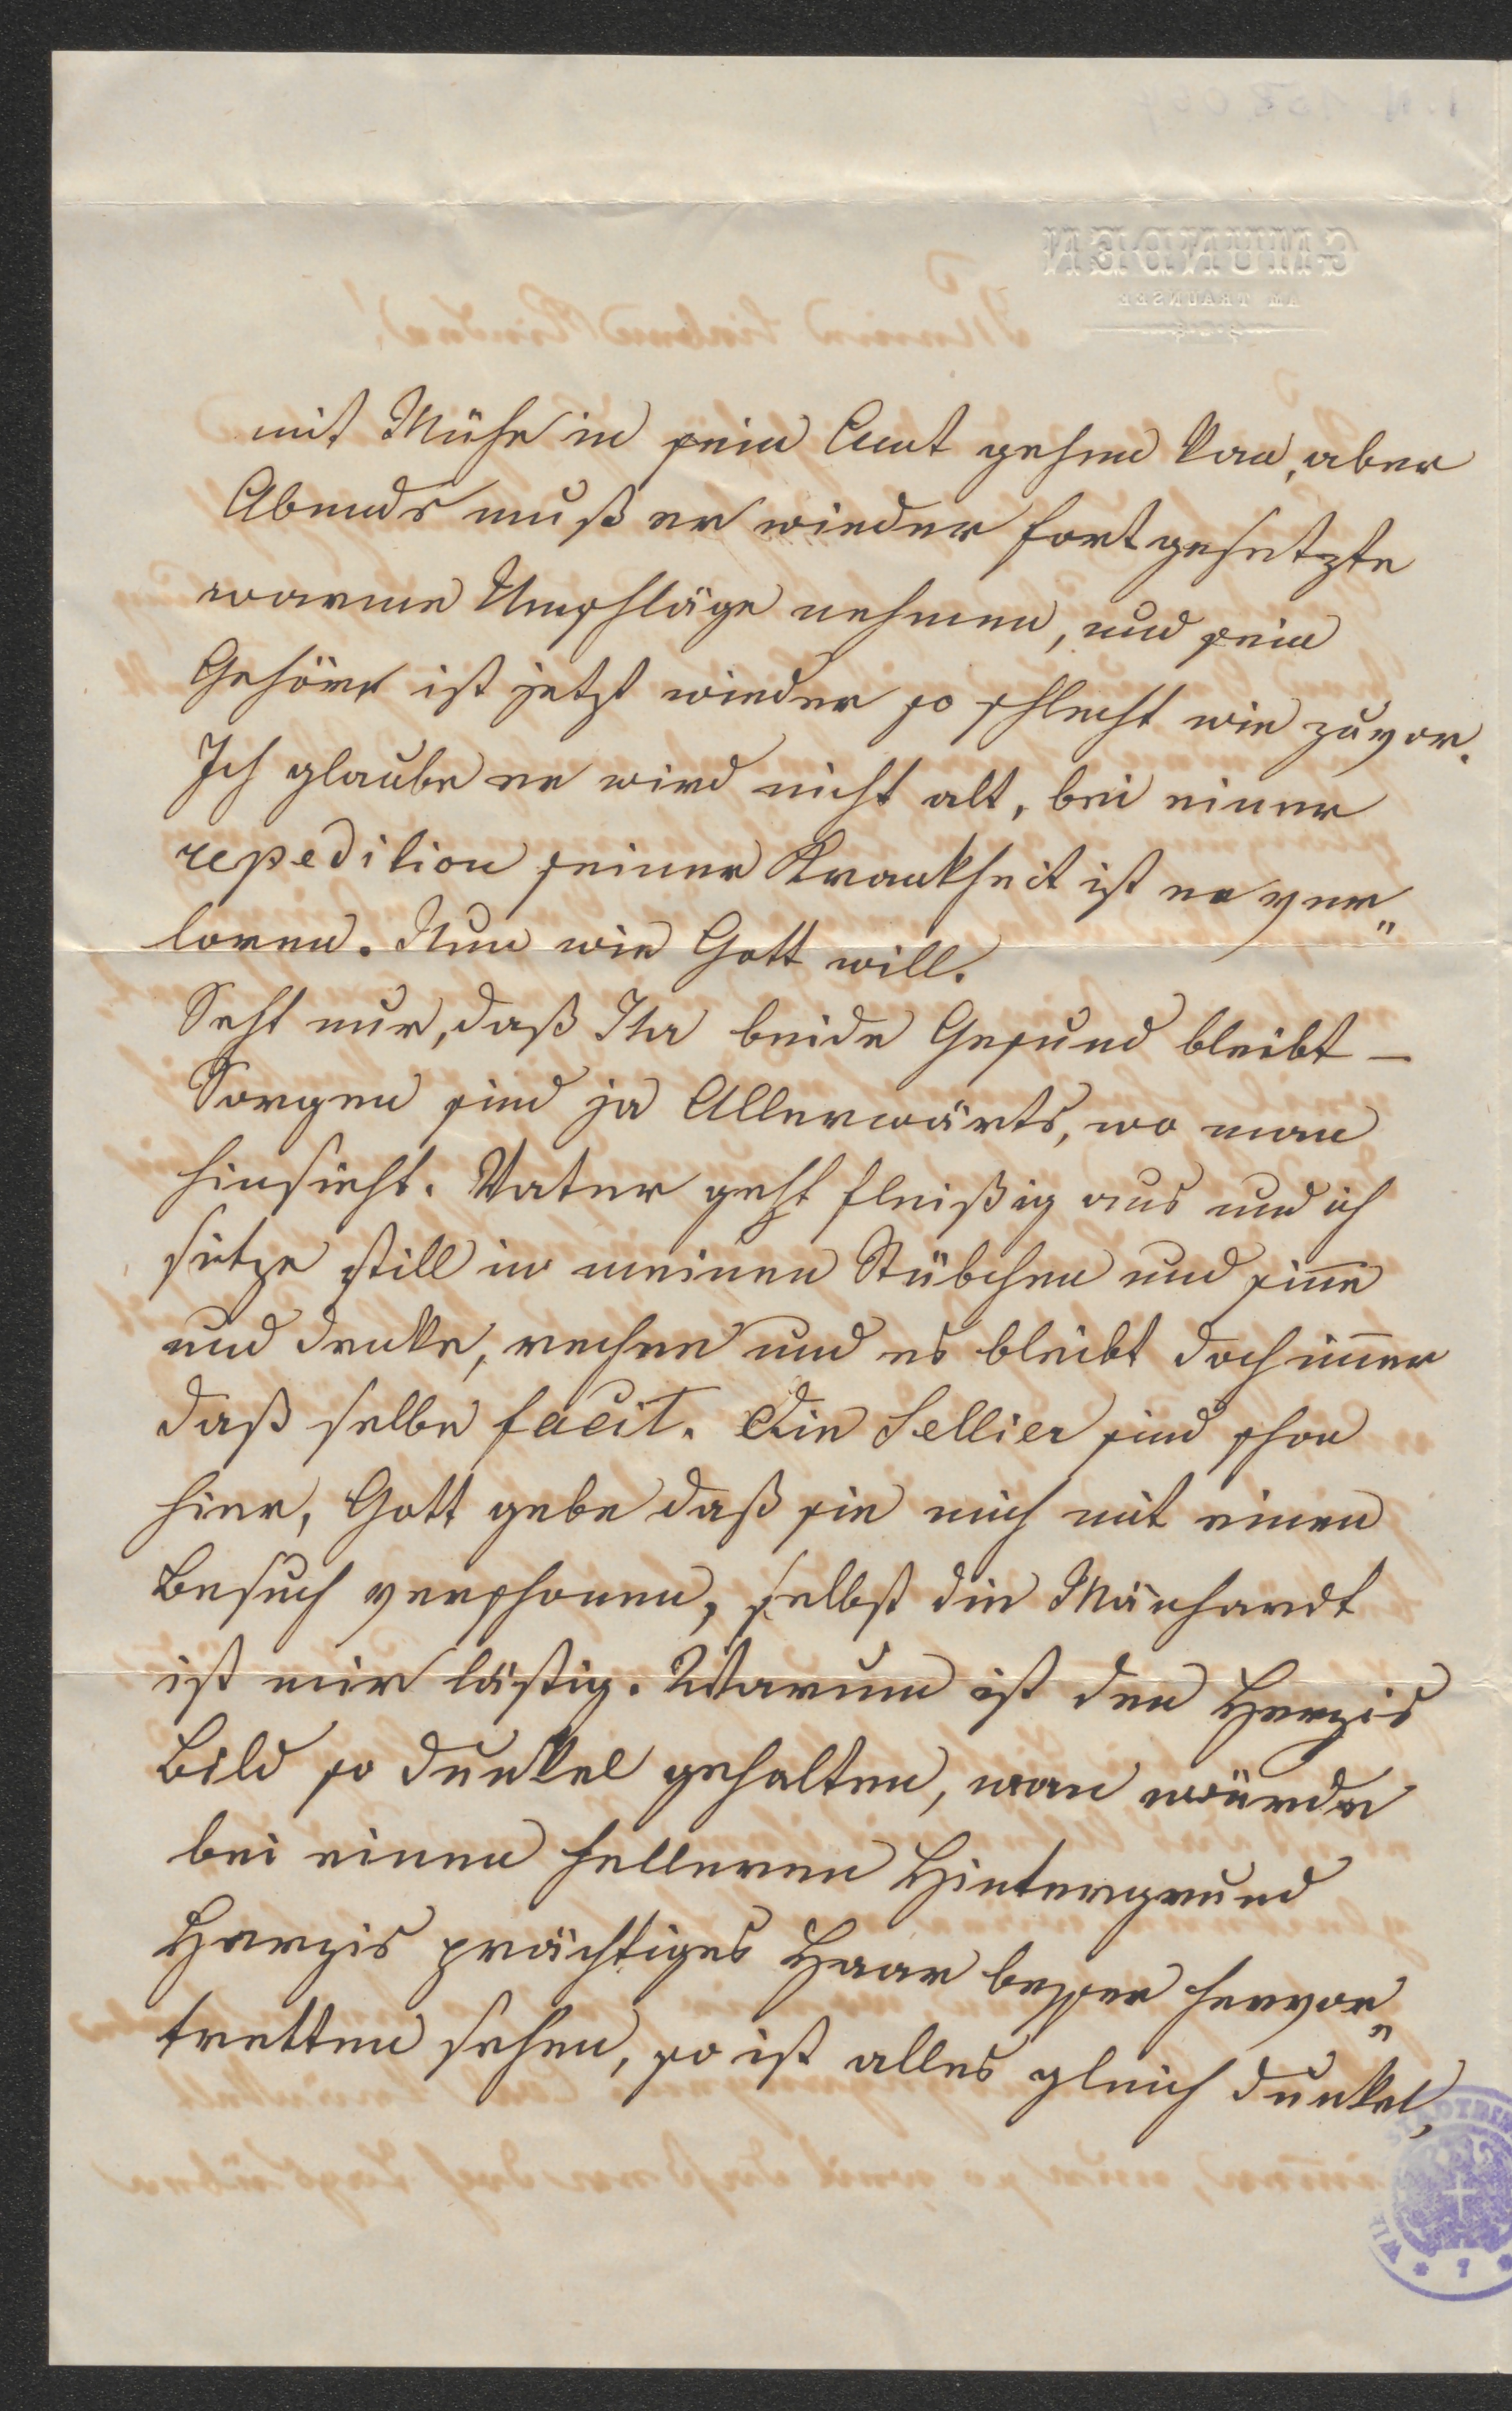 mit Mühe in sein Amt gehen kan, aber
Abends muß er wieder fortgesetzte
warme Umschläge nehmen, und sein
Gehör ist jetzt wieder so schlecht wie zuvor.
Ich glaube er wird nicht alt, bei einer
repedition seiner Krankheit ist er ver„
loren. Nun wie Gott will.
Seht nur, daß Ihr beide Gesund bleibt –
Sorgen sind ja Allerwärts, wo man
hinsieht. Vater geht fleißig aus und ich
sitze still in meinen Stübchen und siñe
und denke, rechne und es bleibt doch im̄er
daß selbe facit. Die Sellier sind schon
hier, Gott gebe daß sie mich mit einen
Besuch verschonen, selbst die Mänhardt
ist mir lästig. Warum ist den Herzis
Bild so dunkel gehalten, man würde
bei einen helleren Hintergrund
Herzis prächtiges Haar besser hervor„
tretten sehen, so ist alles gleich dunkel,
GMUNDEN
AM TRAUNSEE